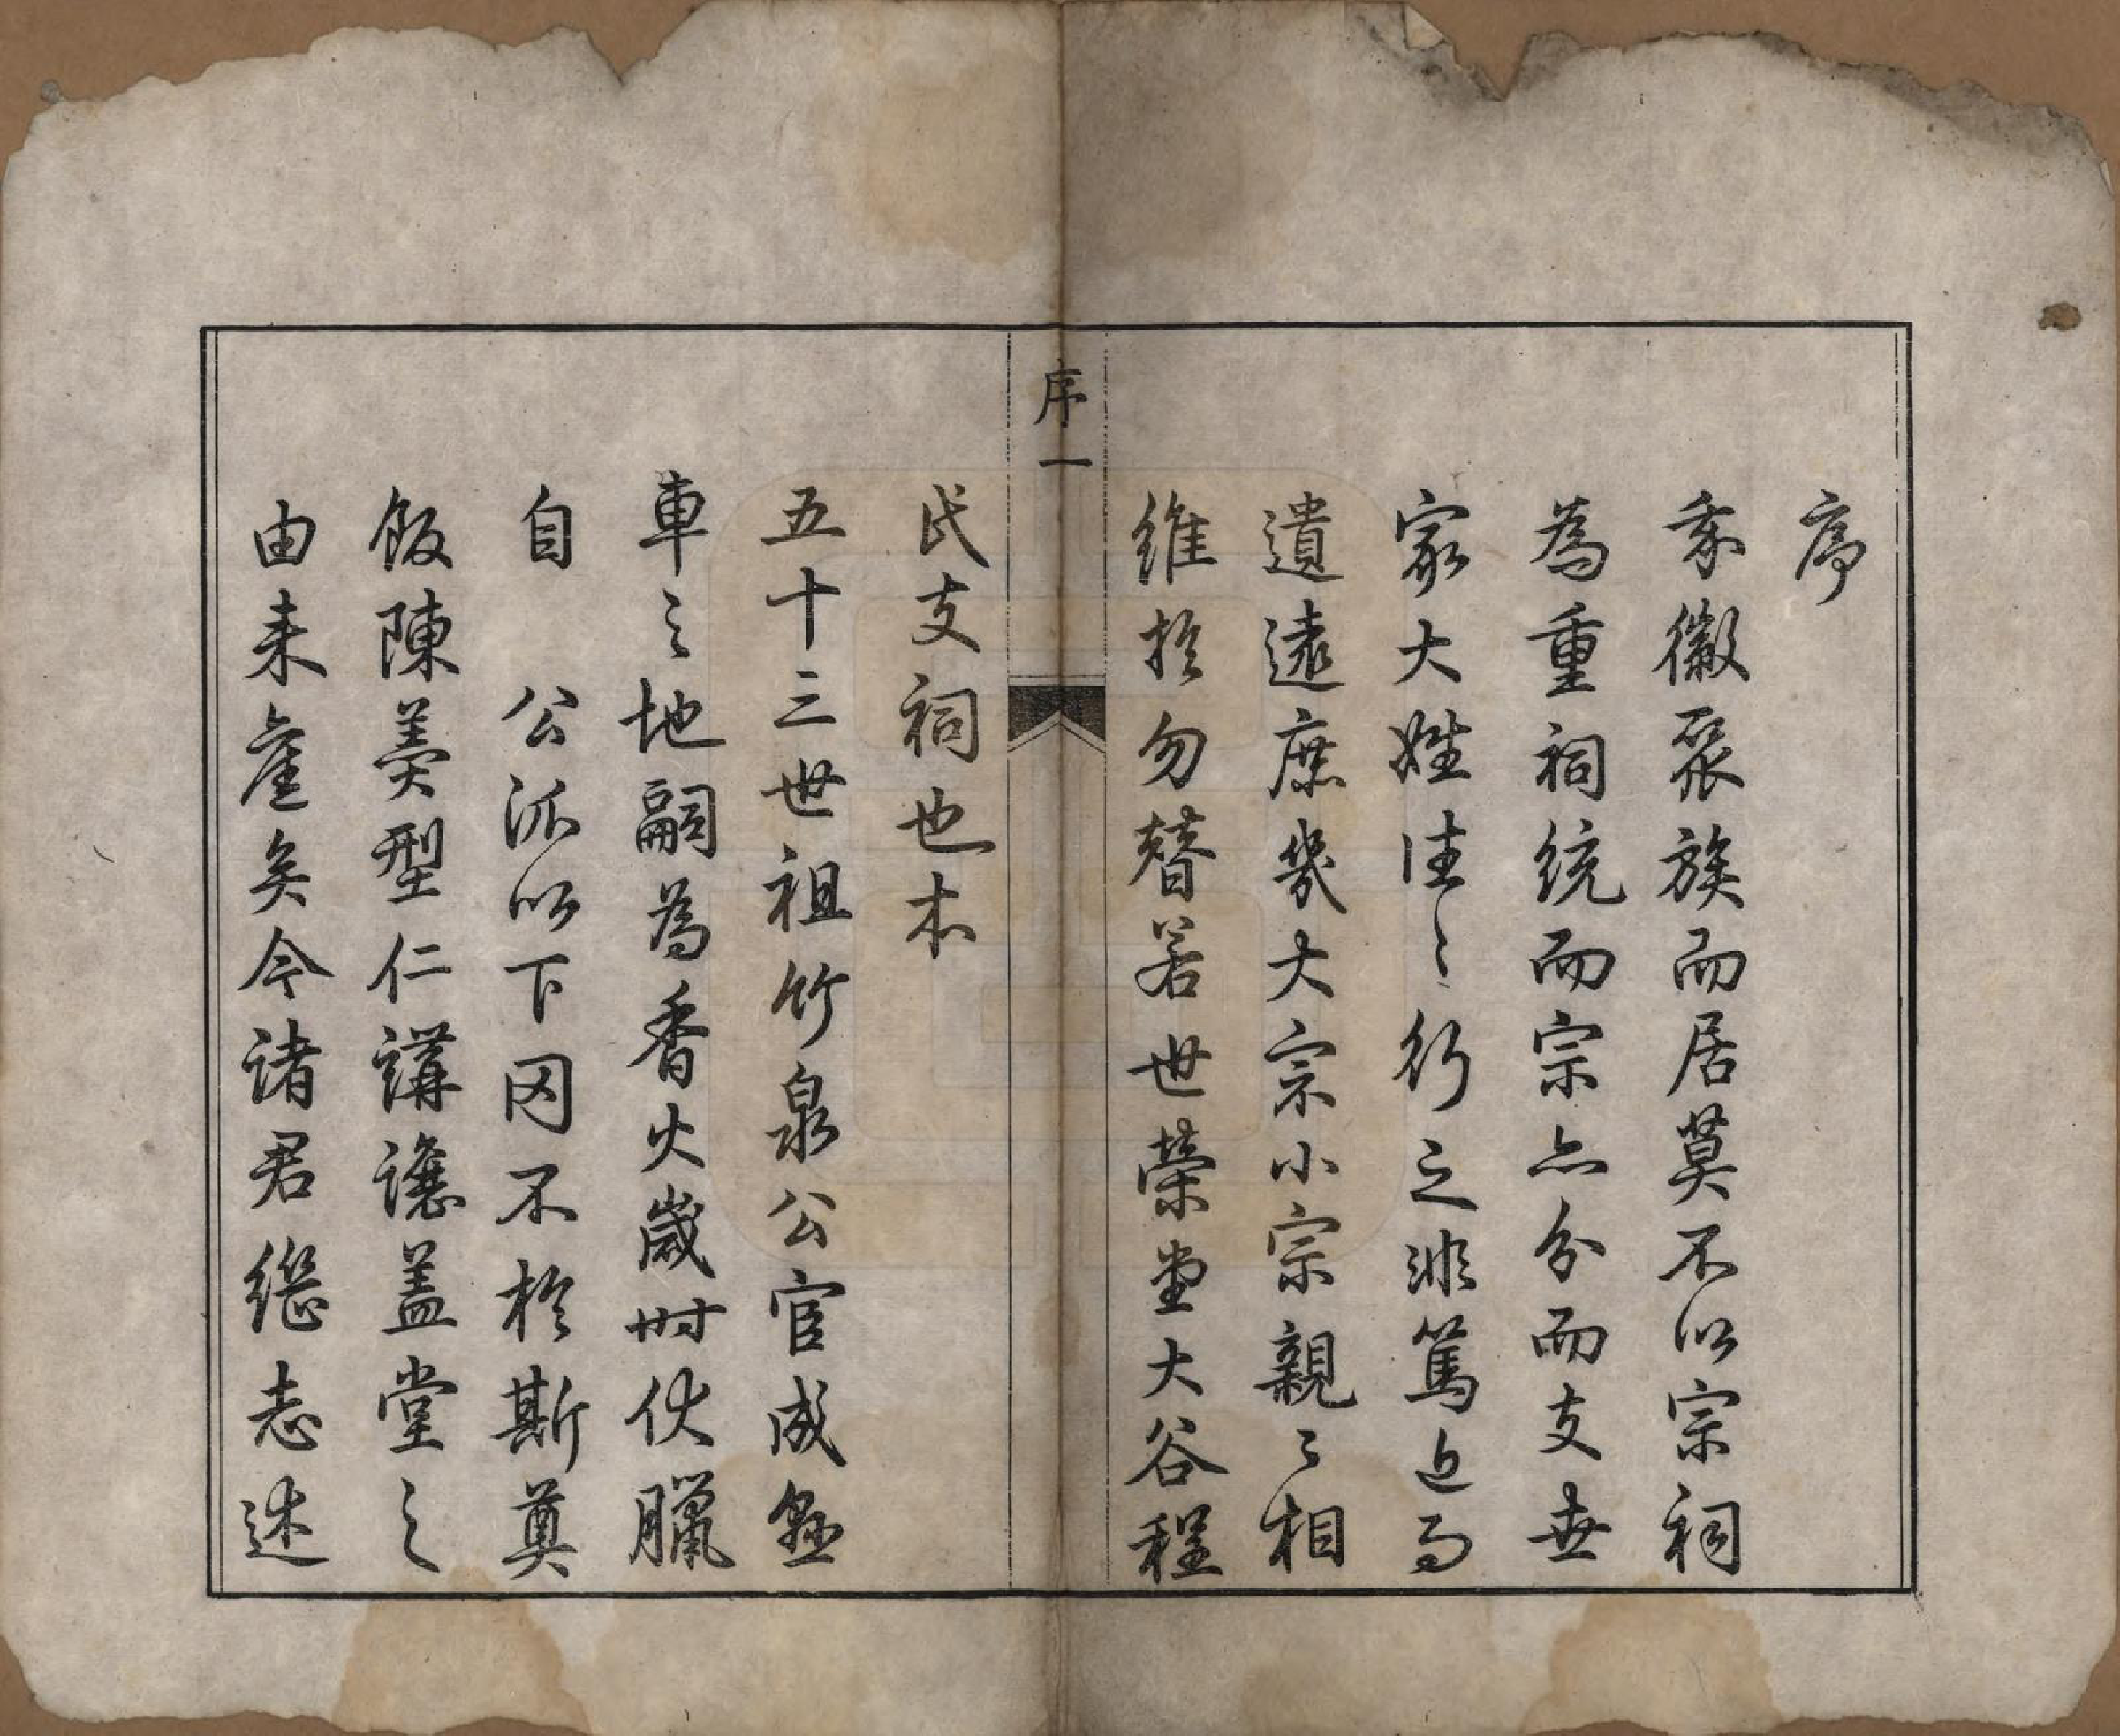 序
我徽聚族而居莫不以宗祠
為重祠統而宗亦分而支世
家大姓往〻行之非篤近而
遺遠庶幾大宗小宗親〻相
維於勿替若世榮堂大谷程
序一
氏支祠也本
五十三世祖竹泉公官成懸
車之地嗣為香火歲時伏臘
自 公派以下罔不於斯奠
飯陳羹型仁講讓蓋堂之
由来舊矣今诸君繼志述